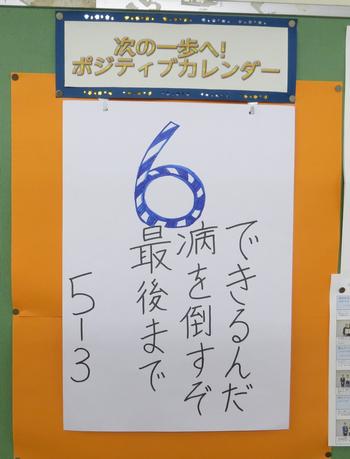 次の一歩へ!
ポジティブカレンダー
6
できるんだ
病を倒すぞ
最後まで
5-3